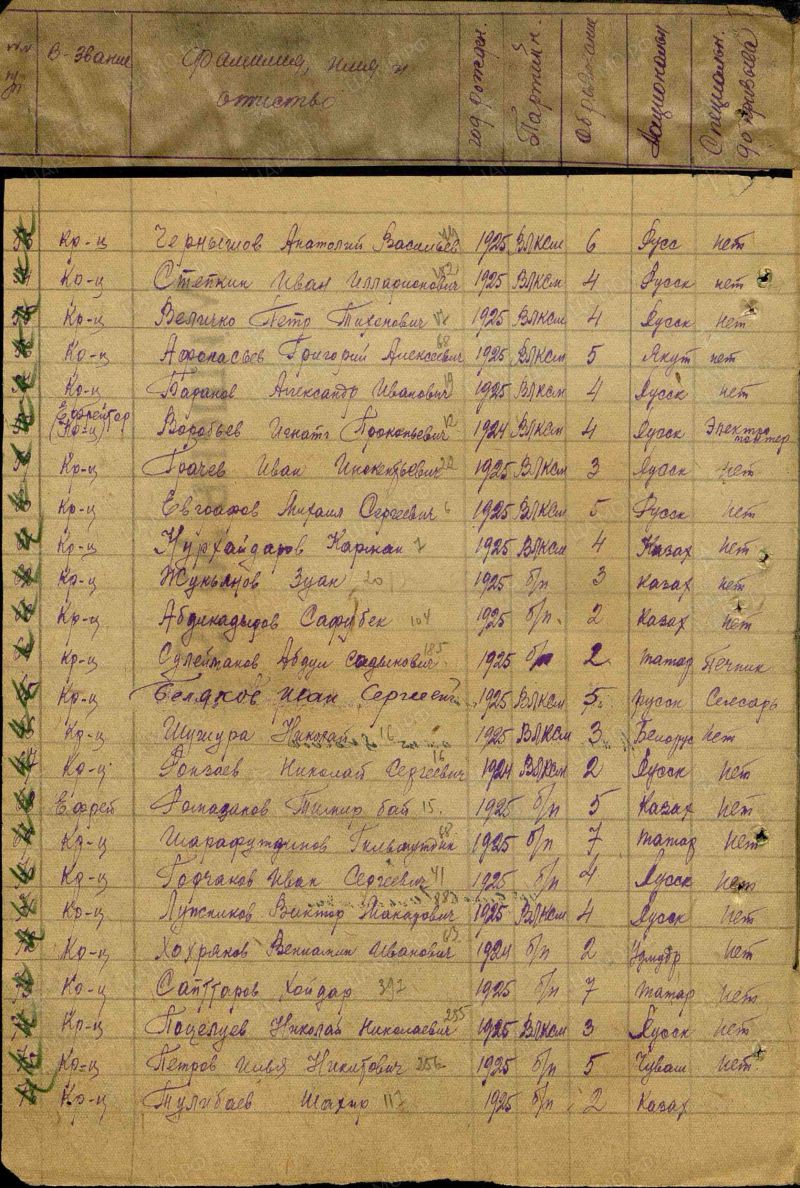 В-Звание Фамилия, имя и отчество год рожден. Партийн. Образование Национальн Специальн. до призыва
Кр-ц Чернышов Анатолий Васильев 1925 ВЛКСМ 6 Русс нет
Кр-ц Степкин Иван Илларионович 1925 ВЛКСМ 4 Русск нет
Кр-ц Величко Петр Тихонович 1925 ВЛКСМ 4 Русск нет
Кр-ц Афонасьев Григорий Алексеевич 68 1925 ВЛКСМ 5 Якут нет
Кр-ц Баранов Александр Иванович 1925 ВЛКСМ 4 Русск нет
Ефрейтор (Кр-ц) Воробьев Игнат Прокопьевич 12 1924 ВЛКСМ 4 Русск Электро монтер
Кр-ц Грачев Иван Инокентьевич 22 1925 ВЛКСМ 3 Русск нет
Кр-ц Евграфов Михаил Сергеевич 6 1925 ВЛКСМ 5 Русск нет
Кр-ц Нурхайдаров Каржан 7 1925 ВЛКСМ 4 Казах нет
Кр-ц Жукьянов Зуан 20 1925 б/п 3 Казах нет
Кр-ц Абдикадыдов Сафубек 104 1925 б/п. 2 Казах нет
Кр-ц Сулейманов Абдул Садыкович 185 1925 б/п 2 татар Печник
Кр-ц Беляков Иван Сергеевич 1925 ВЛКСМ 5 русск Слесарь
Кр-ц Шушура Николай 16 1925 ВЛКСМ 3 Белорус нет
Кр-ц Николай Сергеевич 16 1924 ВЛКСМ 2 Русск нет
Ефрей Ромазанов Тимир бай 15. 1925 б/п 5 Казах нет
Кр-ц Шарафутдинов Гильмутдин 68 1925 б/п 7 татар нет
Кр-ц Горчаков Иван Сергеевич 41 1925 б/п 4 Русск нет
Кр-ц Лужников Виктор Макарович 1925 ВЛКСМ 4 Русск нет
Кр-ц Хохряков Вениамин Иванович 63 1924 б/п 2 Удмурт нет
Кр-ц Саиттаров Хойдар 392 1925 б/п 7 татар нет
Кр-ц Поцелуев Николай Николаевич 255 1925 ВЛКСМ 3 Русск нет
Кр-ц Петров Илья Никитович 256 1925 б/п 5 Чуваш нет
Кр-ц Тулибаев Шахир 117 1925 б/п 2 Казах